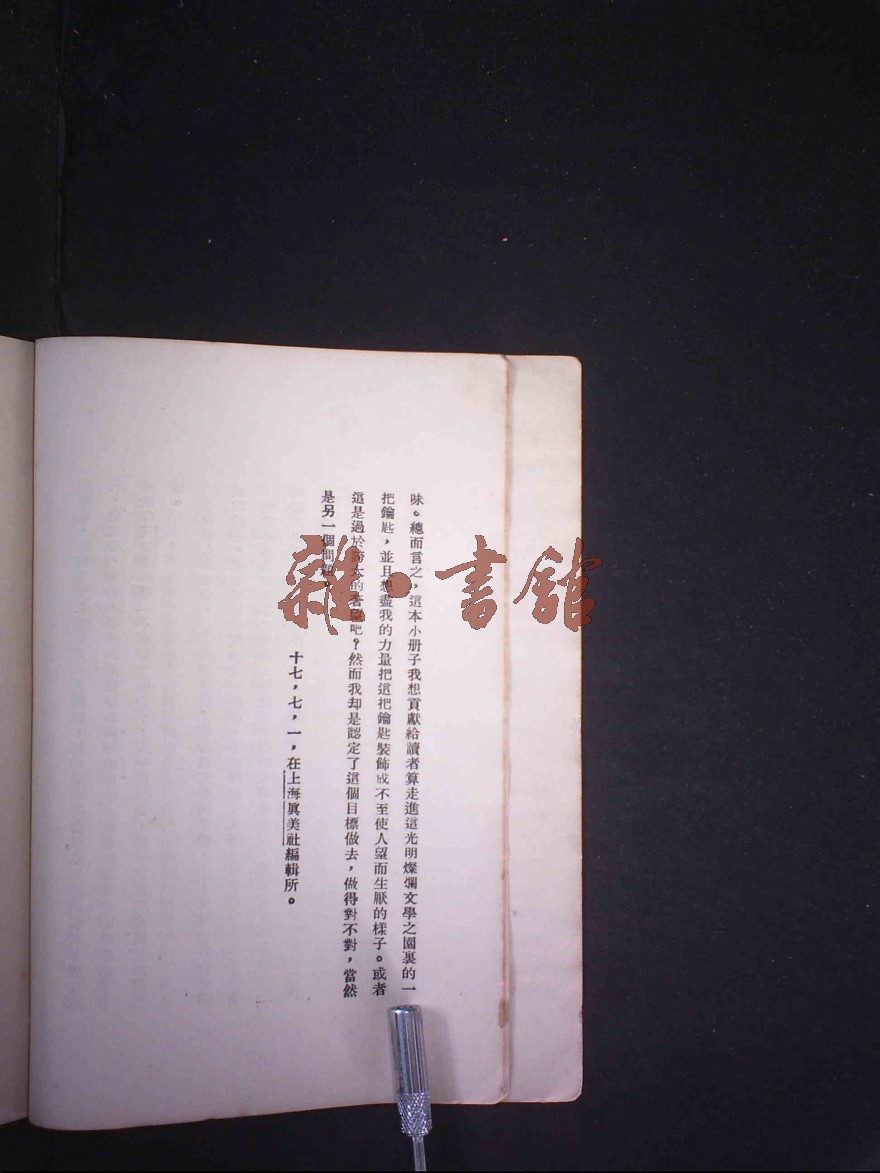 味。總而言之，這本小册子我想貢獻給讀者算走進這光明燦爛文學之園裏的一
把鑰匙，並且想盡我的力量把這把鑰匙裝飾成不至使人望而生厭的樣子。或者
這是過於誇大的奢望吧？然而我却是認定了這個目標做去，做得對不對，當然
是另一個問題。
十七，七，一，在上海眞美社編輯所。
雜·書館